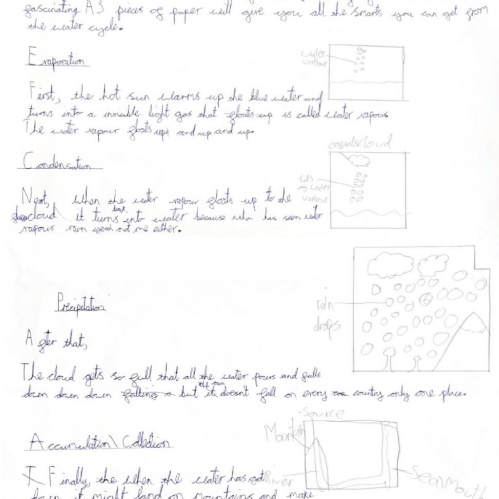 fascinating A3 pieces of paper will give you all the smarts you can get from
the water cycle.
Evaporation
water
vapour
First, the hot sun warms up the blue water and
turns into a invisible light gas that floats up is called water vapour
The water vapour floats up and up and up.
Condensation
cloud
lots
of water
vapour
Next, when the water vapour floats up to the
cloud it turns back into water because who has seen water
vapour rain not me either.
Precipitation
rain
drops
After that,
The cloud gets so full that all the water pours and falls
down down down but it doesn't fall on every country only one place.
Accumulation\Collection
Source
Mountain
River
Seamouth
I Finally, the when the water has got
down it might land on mountains and make